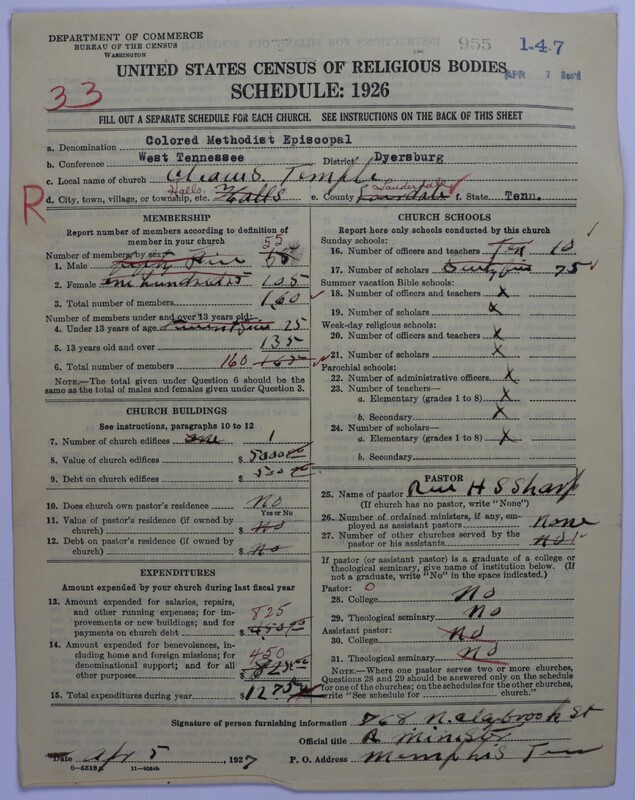 DEPARTMENT OF COMMERCE
BUREAU OF THE CENSUS
WASHINGTON
955 1-4-7
APR 7 Rec'd
UNITED STATES CENSUS OF RELIGIOUS BODIES
SCHEDULE: 1926
33
FILL OUT A SEPARATE SCHEDULE FOR EACH CHURCH. SEE INSTRUCTIONS ON THE BACK OF THIS SHEET
a. Denomination Colored Methodist Episcopal
b. Conference West Tennessee District Dyersburg
c. Local name of church Cleaves Temple
R
d. City, town, village, or township, etc. Halls Halls e. County Lauderdale f. State Tenn.
MEMBERSHIP
Report number of members according to definition of
member in your church
Number of members by sex:
1. Male fifty five 55
2. Female one hundred 5 105
3. Total number of members 160
Number of members under and over 13 years old:
4. Under 13 years of age 25
5. 13 years old and over 135
6. Total number of members 160
NOTE.—The total given under Question 6 should be the
same as the total of males and females given under Question 3.
CHURCH BUILDINGS
See instructions, paragraphs 10 to 12
7. Number of church edifices one 1
8. Value of church edifices $ 5000.00
9. Debt on church edifices $
10. Does church own pastor's residence No
Yes or No
11. Value of pastor's residence (if owned by
church) $ No
12. Debt on pastor's residence (if owned by
church) $ No
EXPENDITURES
Amount expended by your church during last fiscal year
13. Amount expended for salaries, repairs,
and other running expenses; for im-
provements or new buildings; and for
payments on church debt 825 $
14. Amount expended for benevolences, in-
cluding home and foreign missions; for
denominational support; and for all
other purposes 450 $
15. Total expenditures during year $ 1275
CHURCH SCHOOLS
Report here only schools conducted by this church
Sunday schools:
16. Number of officers and teachers Ten 10
17. Number of scholars 75
Summer vacation Bible schools:
18. Number of officers and teachers X
19. Number of scholars X
Week-day religious schools:
20. Number of officers and teachers X
21. Number of scholars X
Parochial schools:
22. Number of administrative officers X
23. Number of teachers—
a. Elementary (grades 1 to 8) X
b. Secondary X
24. Number of scholars—
a. Elementary (grades 1 to 8) X
b. Secondary
PASTOR
25. Name of pastor Rev H S Sharp
(If church has no pastor, write "None")
26. Number of ordained ministers, if any, em-
ployed as assistant pastors none
27. Number of other churches served by the
pastor or his assistants
If pastor (or assistant pastor) is a graduate of a college or
theological seminary, give name of institution below. (If
not a graduate, write "No" in the space indicated.)
Pastor: 0
28. College No
29. Theological seminary No
Assistant pastor:
30. College No
31. Theological seminary No
NOTE.—Where one pastor serves two or more churches,
Questions 28 and 29 should be answered only on the schedule
for one of the churches; on the schedules for the other churches,
write "See schedule for church."
Signature of person furnishing information 768 N. Claybrook St
Official title A minister
Date Apr 5, 1927 P. O. Address Memphis Tenn
8-5518a 11-9064b